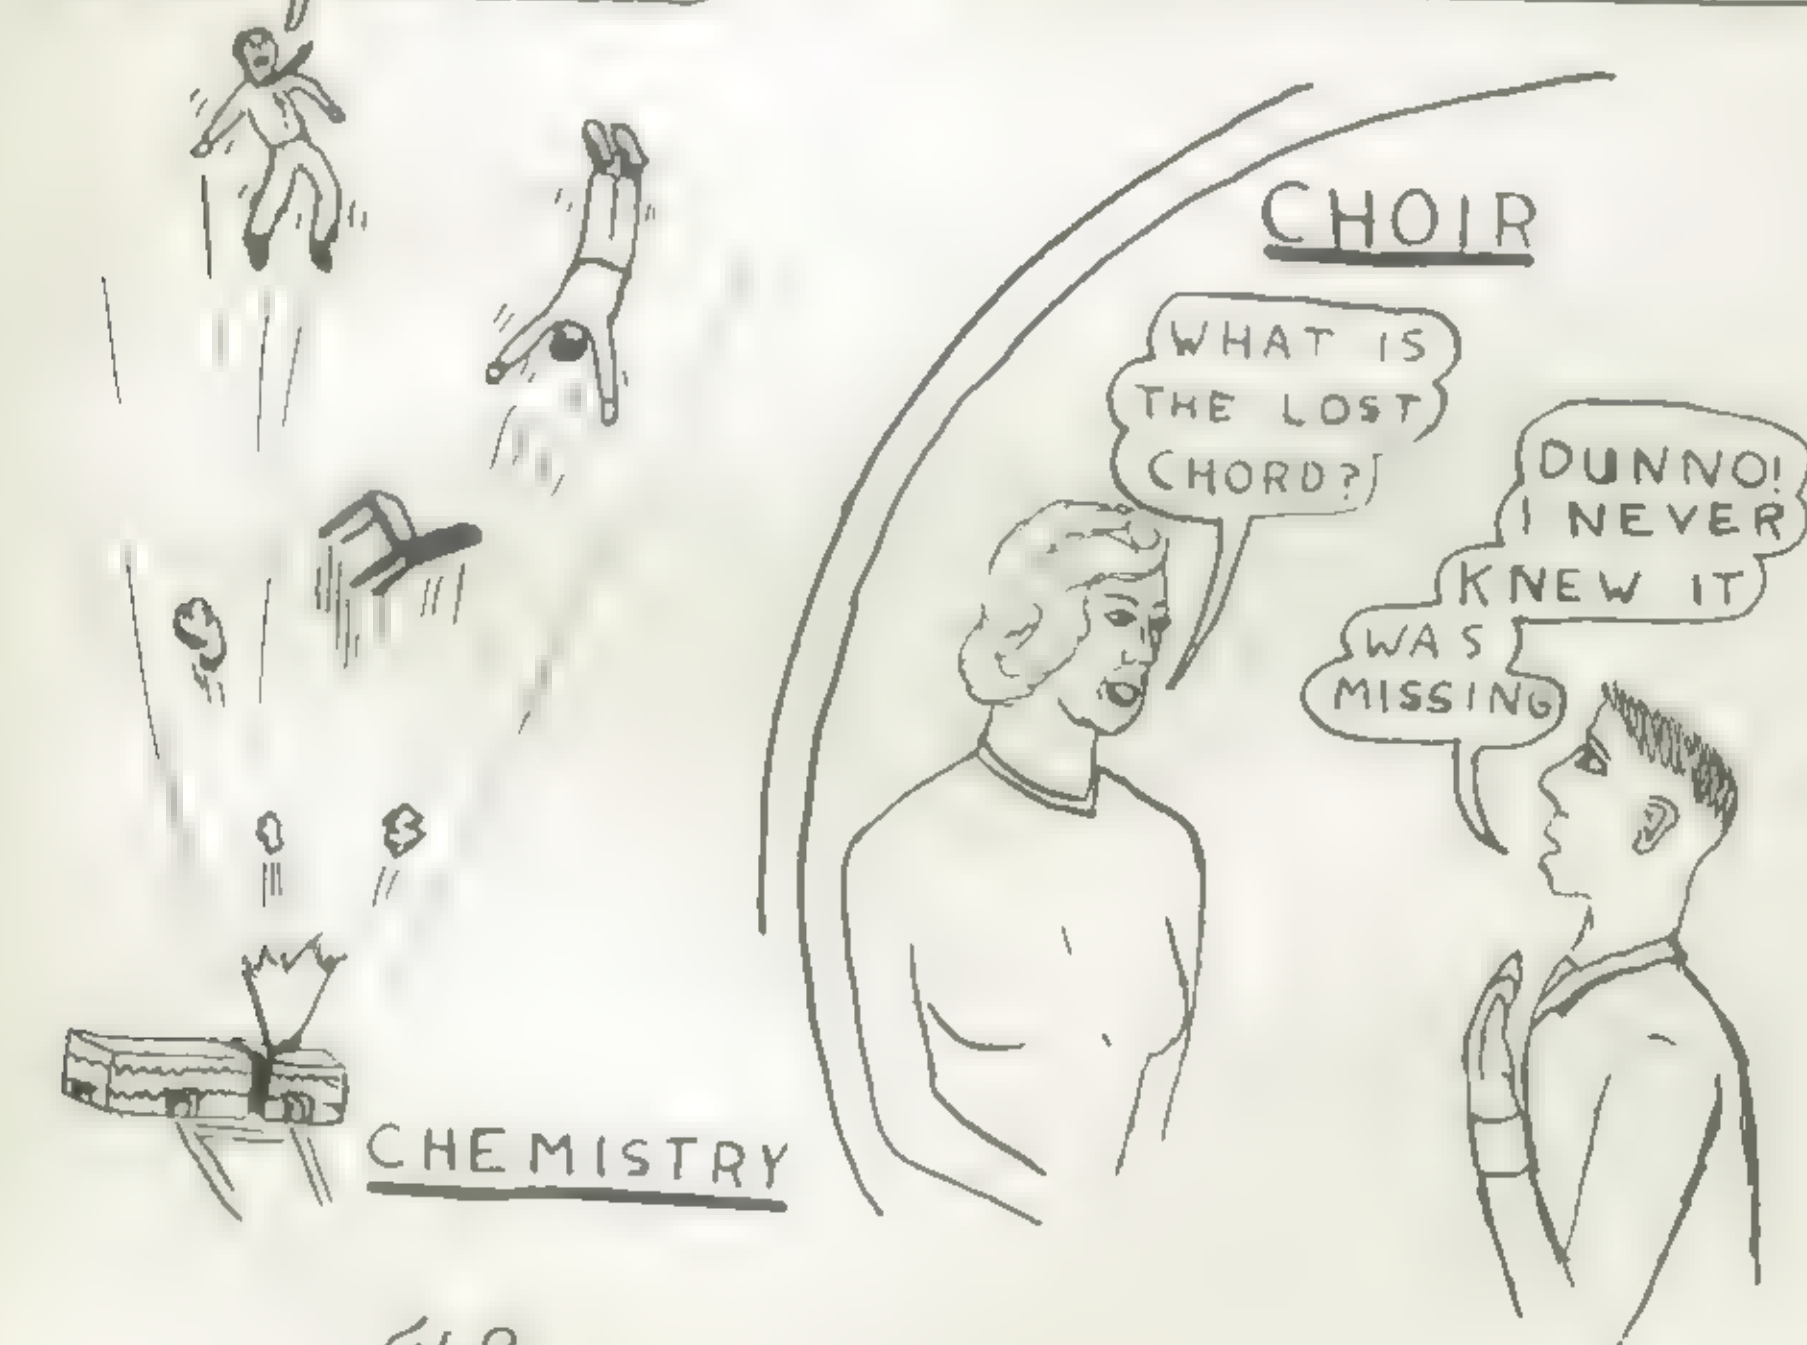 CHOIR
WHAT IS
THE LOST
CHORD?
DUNNO!
I NEVER
KNEW IT
WAS
MISSING
CHEMISTRY